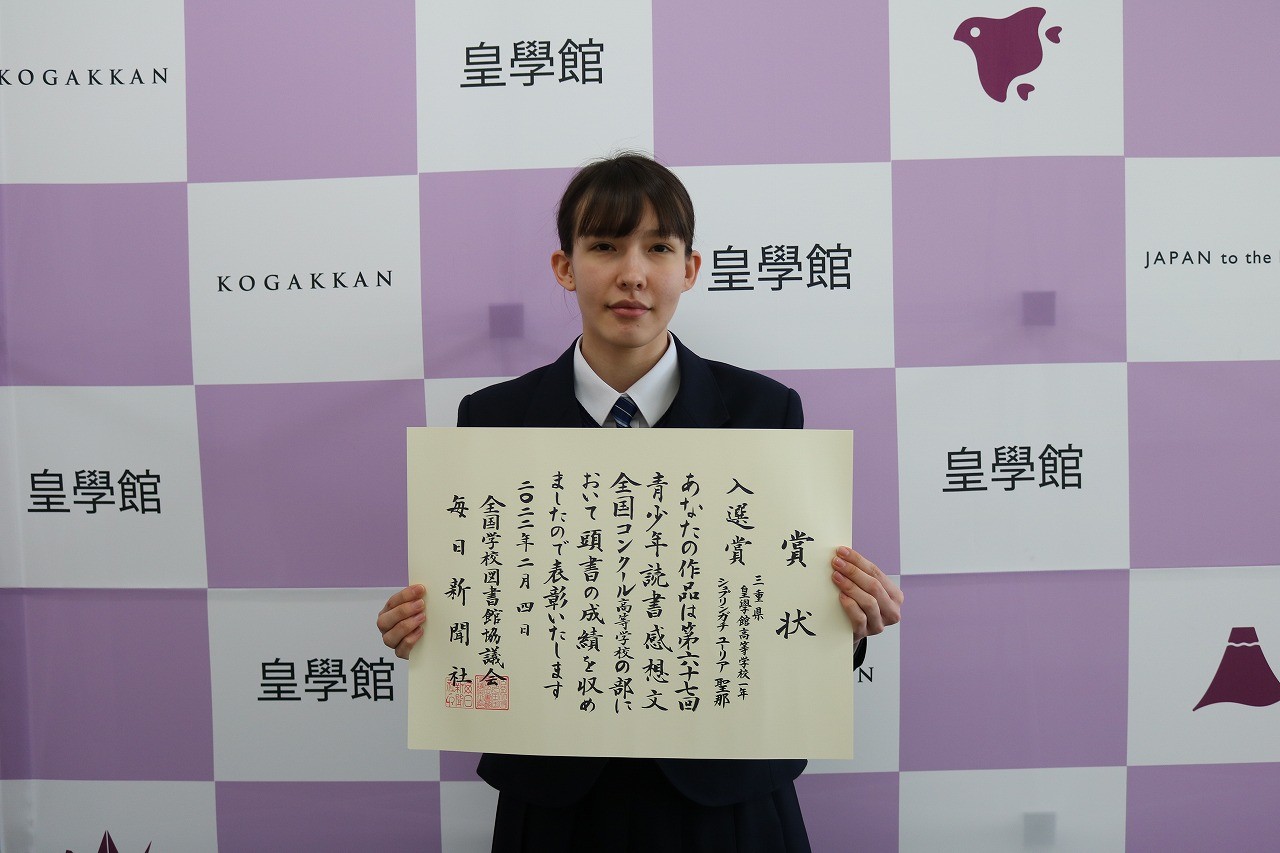 KOGAKKAN
皇學館
KOGAKKAN
皇學館
JAPAN to the
皇學館
皇學館
皇學館
N
賞状
入選賞
三重県
皇學館高等学校一年
シアリンガチ ユーリア 聖那
あなたの作品は第六十七回
青少年読書感想文
全国コンクール高等学校の部に
おいて頭書の成績を収め
ましたので表彰いたします
二〇二二年二月四日
全国学校図書館協議会
毎日新聞社